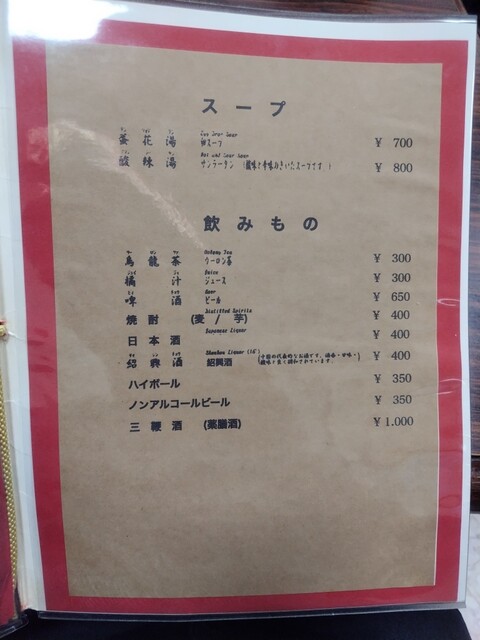 スープ
蛋花湯 Egg Drop Soup 卵スープ ¥ 700
酸辣湯 Hot and Sour Soup サンラータン (酸味と辛味のきいたスープです) ¥ 800
飲みもの
烏龍茶 ウーロン茶 ¥ 300
橘汁 Juice ジュース ¥ 300
啤酒 Beer ビール ¥ 650
焼酎 (麦/芋) Distilled Spirits ¥ 400
日本酒 Japanese Liquor ¥ 400
紹興酒 紹興酒 ¥ 400
ハイボール ¥ 350
ノンアルコールビール ¥ 350
三鞭酒 (薬膳酒) ¥ 1.000